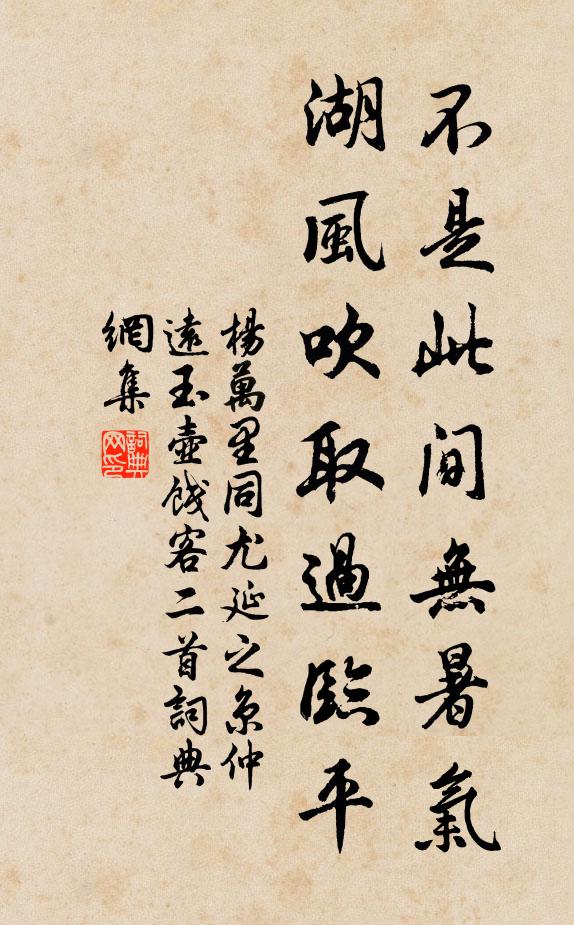 不是此間無暑氣
湖風吹取過臨平
楊萬里同尤延之京仲
遠玉壺餞客二首詞典
網集
詞典
网印